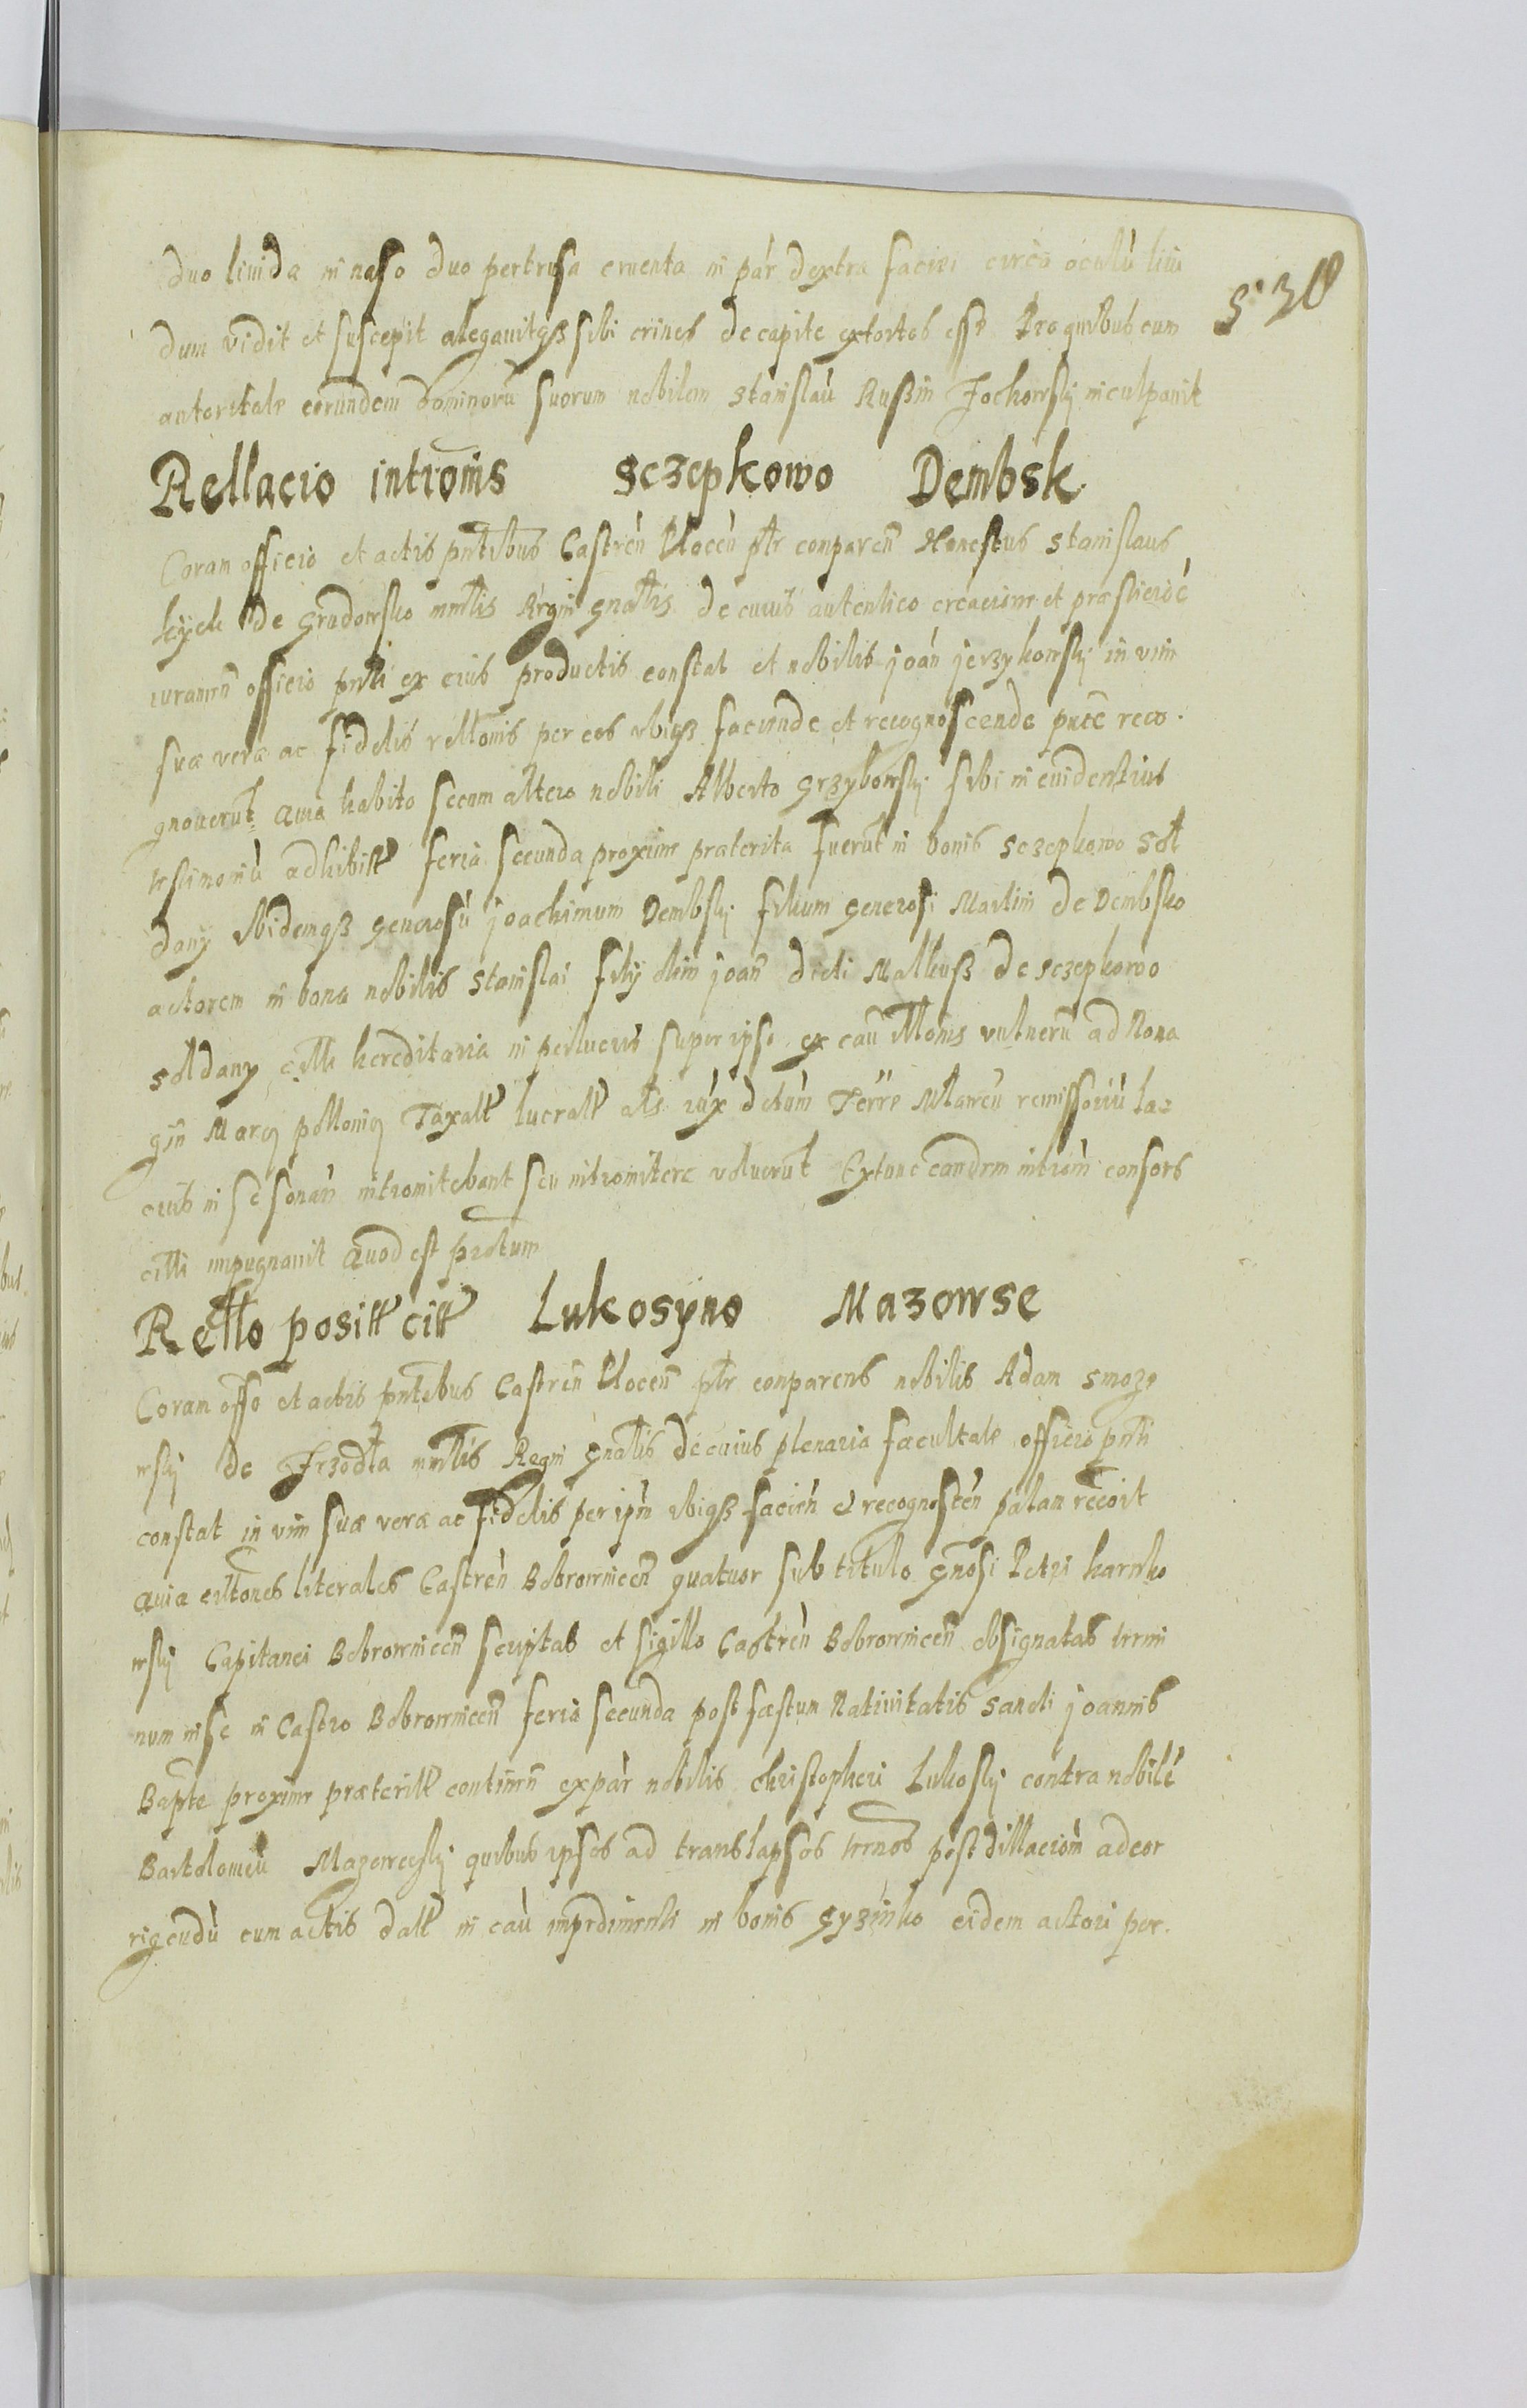 duo liuida in naso duo pertrusa cruenta in par dextra faciei circa oculu liui
530
dum vidit et suscepit alegauitqß sibi crines de capite extortos esse Pro quibus eum
autoritate eorundem dominoru suorum nobilem Stanislau Rußin Jochowsky inculpauit
Rellacio introms Sczepkowo Dembsk
Coram officio et actis pntibus Castren Plocen ptr conparen Honestus Stanislaus
kyck de Grudowsko mrlis Regni gnalis de cuius autentico creacione et præsticioe
iuramen officio pnti ex eius productis constat et nobilis joan jerzykowsky in vim
suæ veræ ac fidelis rellonis per eos vbiqß faciende et recognoscende pnte reco
gnouerut Quia habito secum altero nobili Alberto Grzybowsky sibi in euidentius
testimoniu adhibitt feria secunda proxime præterita fuerut in bonis Sczepkowo Sol
dany Ibidemqß generosu joachimum Dembsky filium generosi Martini de Dembsko
actorem in bona nobilis Stanislai filij olim joan dicti Matheuß de Sczepkowo
Soldany citti hereditaria in perlucris super ipso ex cau illonis vulneru ad Nona
gin Marcs pollonics Taxatt lucratt als iux dctam Terre Mlawen remissoriu la
cius in se sonan intromitebant seu intromitere voluerut Extunc eandem introm consors
citti impugnauit Quod est protum
Retto positt citt Lukosyno Mazowse
Coram offo et actis pntibus Castren Plocen ptr conparens nobilis Adam Smoze
wsky de Jrzodla mrlis Regni gnalis de cuius plenaria facultate officio pnti
constat in vim suæ veræ ac fidelis per ipm vbiqß facien et recognoscen palam recoit
Quia cittones literales Castren Bobrownicen quatuor sub titulo gnosi Petri karnko
wsky Capitanei Bobrownicen scriptas et sigillo Castren Bobrownicen obsignatas termi
num in se in Castro Bobrownicen feria secunda post fæstum Natiuitatis Sancti joannis
Bapte proxime præteritt continen ex par nobilis christopheri Lukosky contra nobile
Bartolomeu Mazowesky quibus ipsos ad translapsos trnos post dillaciom ad cor
rigendu cum actis datt in cau impedimenti in bonis Gyzinko eidem actori per